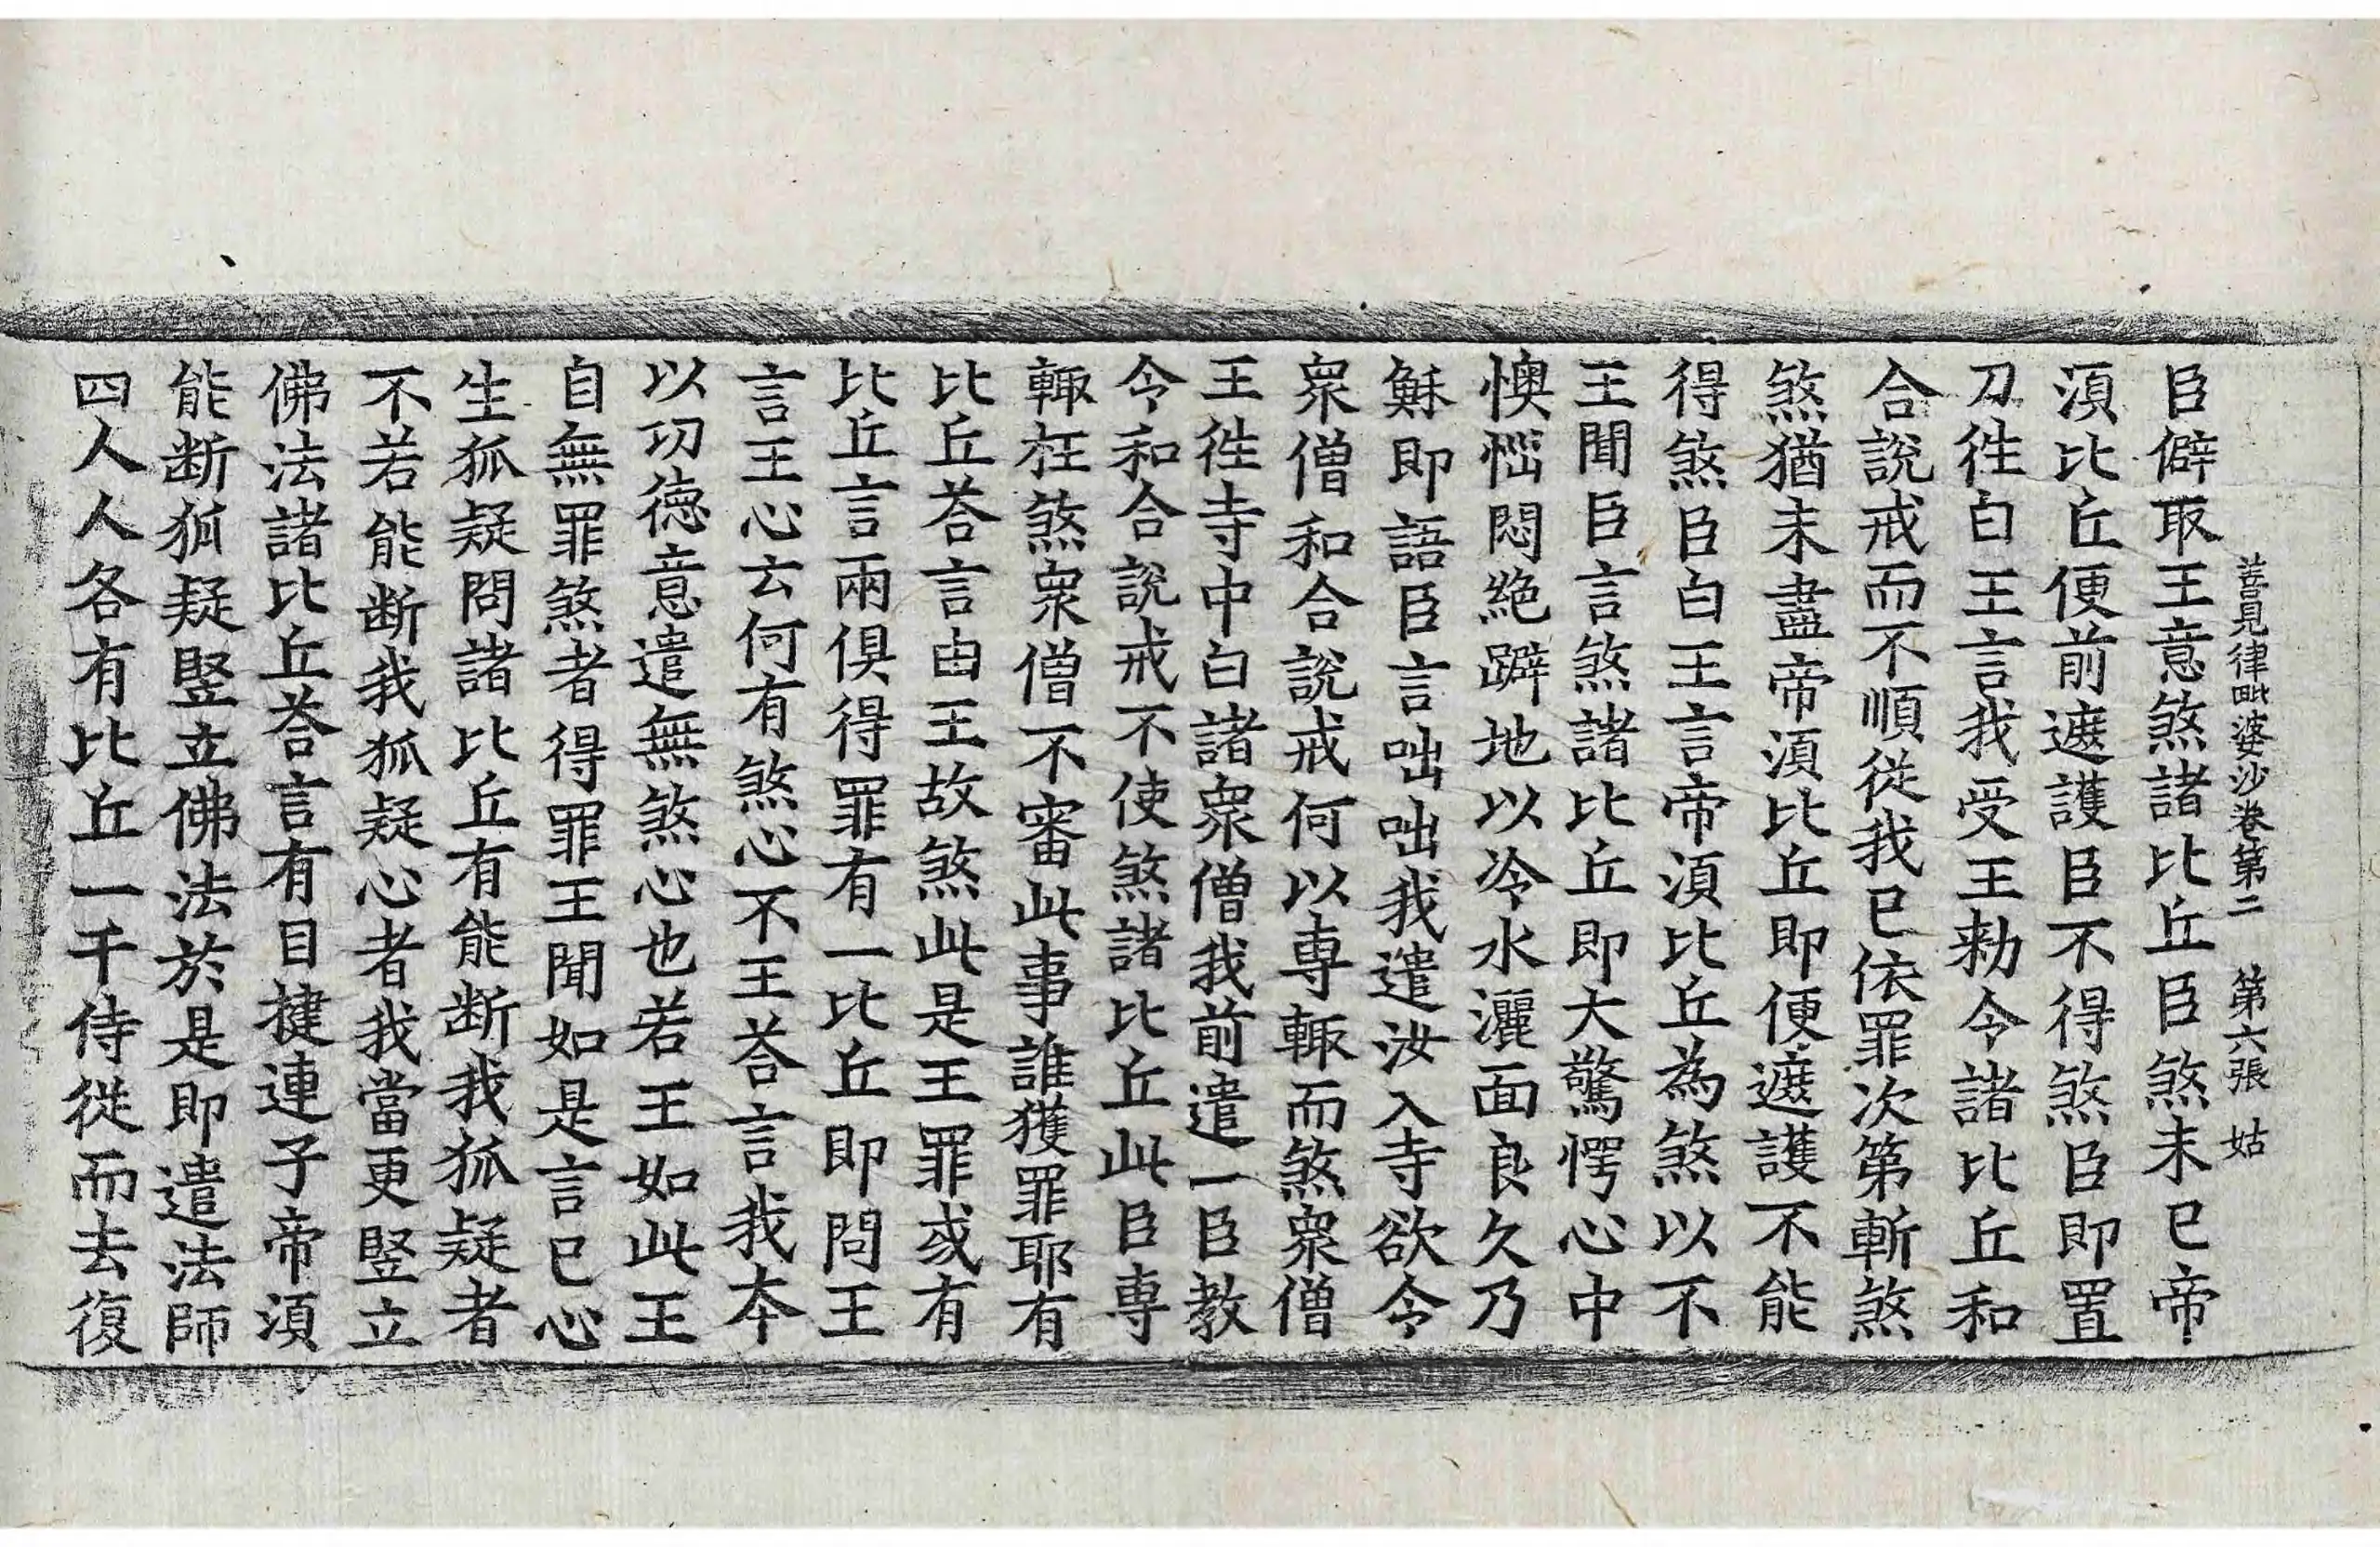 善見律毗婆沙卷第二　第六張　姑
臣僻取王意煞諸比丘臣煞未已帝
湏比丘便前遮護臣不得煞臣即置
刀徃白王言我受王勑令諸比丘和
合說戒而不順從我已依罪次第斬煞
煞猶未盡帝湏比丘即便遮護不能
得煞臣白王言帝湏比丘為煞以不
王聞臣言煞諸比丘即大驚愕心中
懊惱悶絕躃地以冷水灑面良久乃
穌即語臣言咄咄我遣汝入寺欲令
衆僧和合說戒何以專輙而煞衆僧
王徃寺中白諸衆僧我前遣一臣教
令和合說戒不使煞諸比丘此臣專
輙枉煞衆僧不審此事誰獲罪耶有
比丘荅言由王故煞此是王罪或有
比丘言兩俱得罪有一比丘即問王
言王心云何有煞心不王荅言我本
以功德意遣無煞心也若王如此王
自無罪煞者得罪王聞如是言已心
生狐疑問諸比丘有能断我狐疑者
不若能断我狐疑心者我當更竪立
佛法諸比丘荅言有目揵連子帝湏
能断狐疑竪立佛法於是即遣法師
四人人各有比丘一千侍從而去復